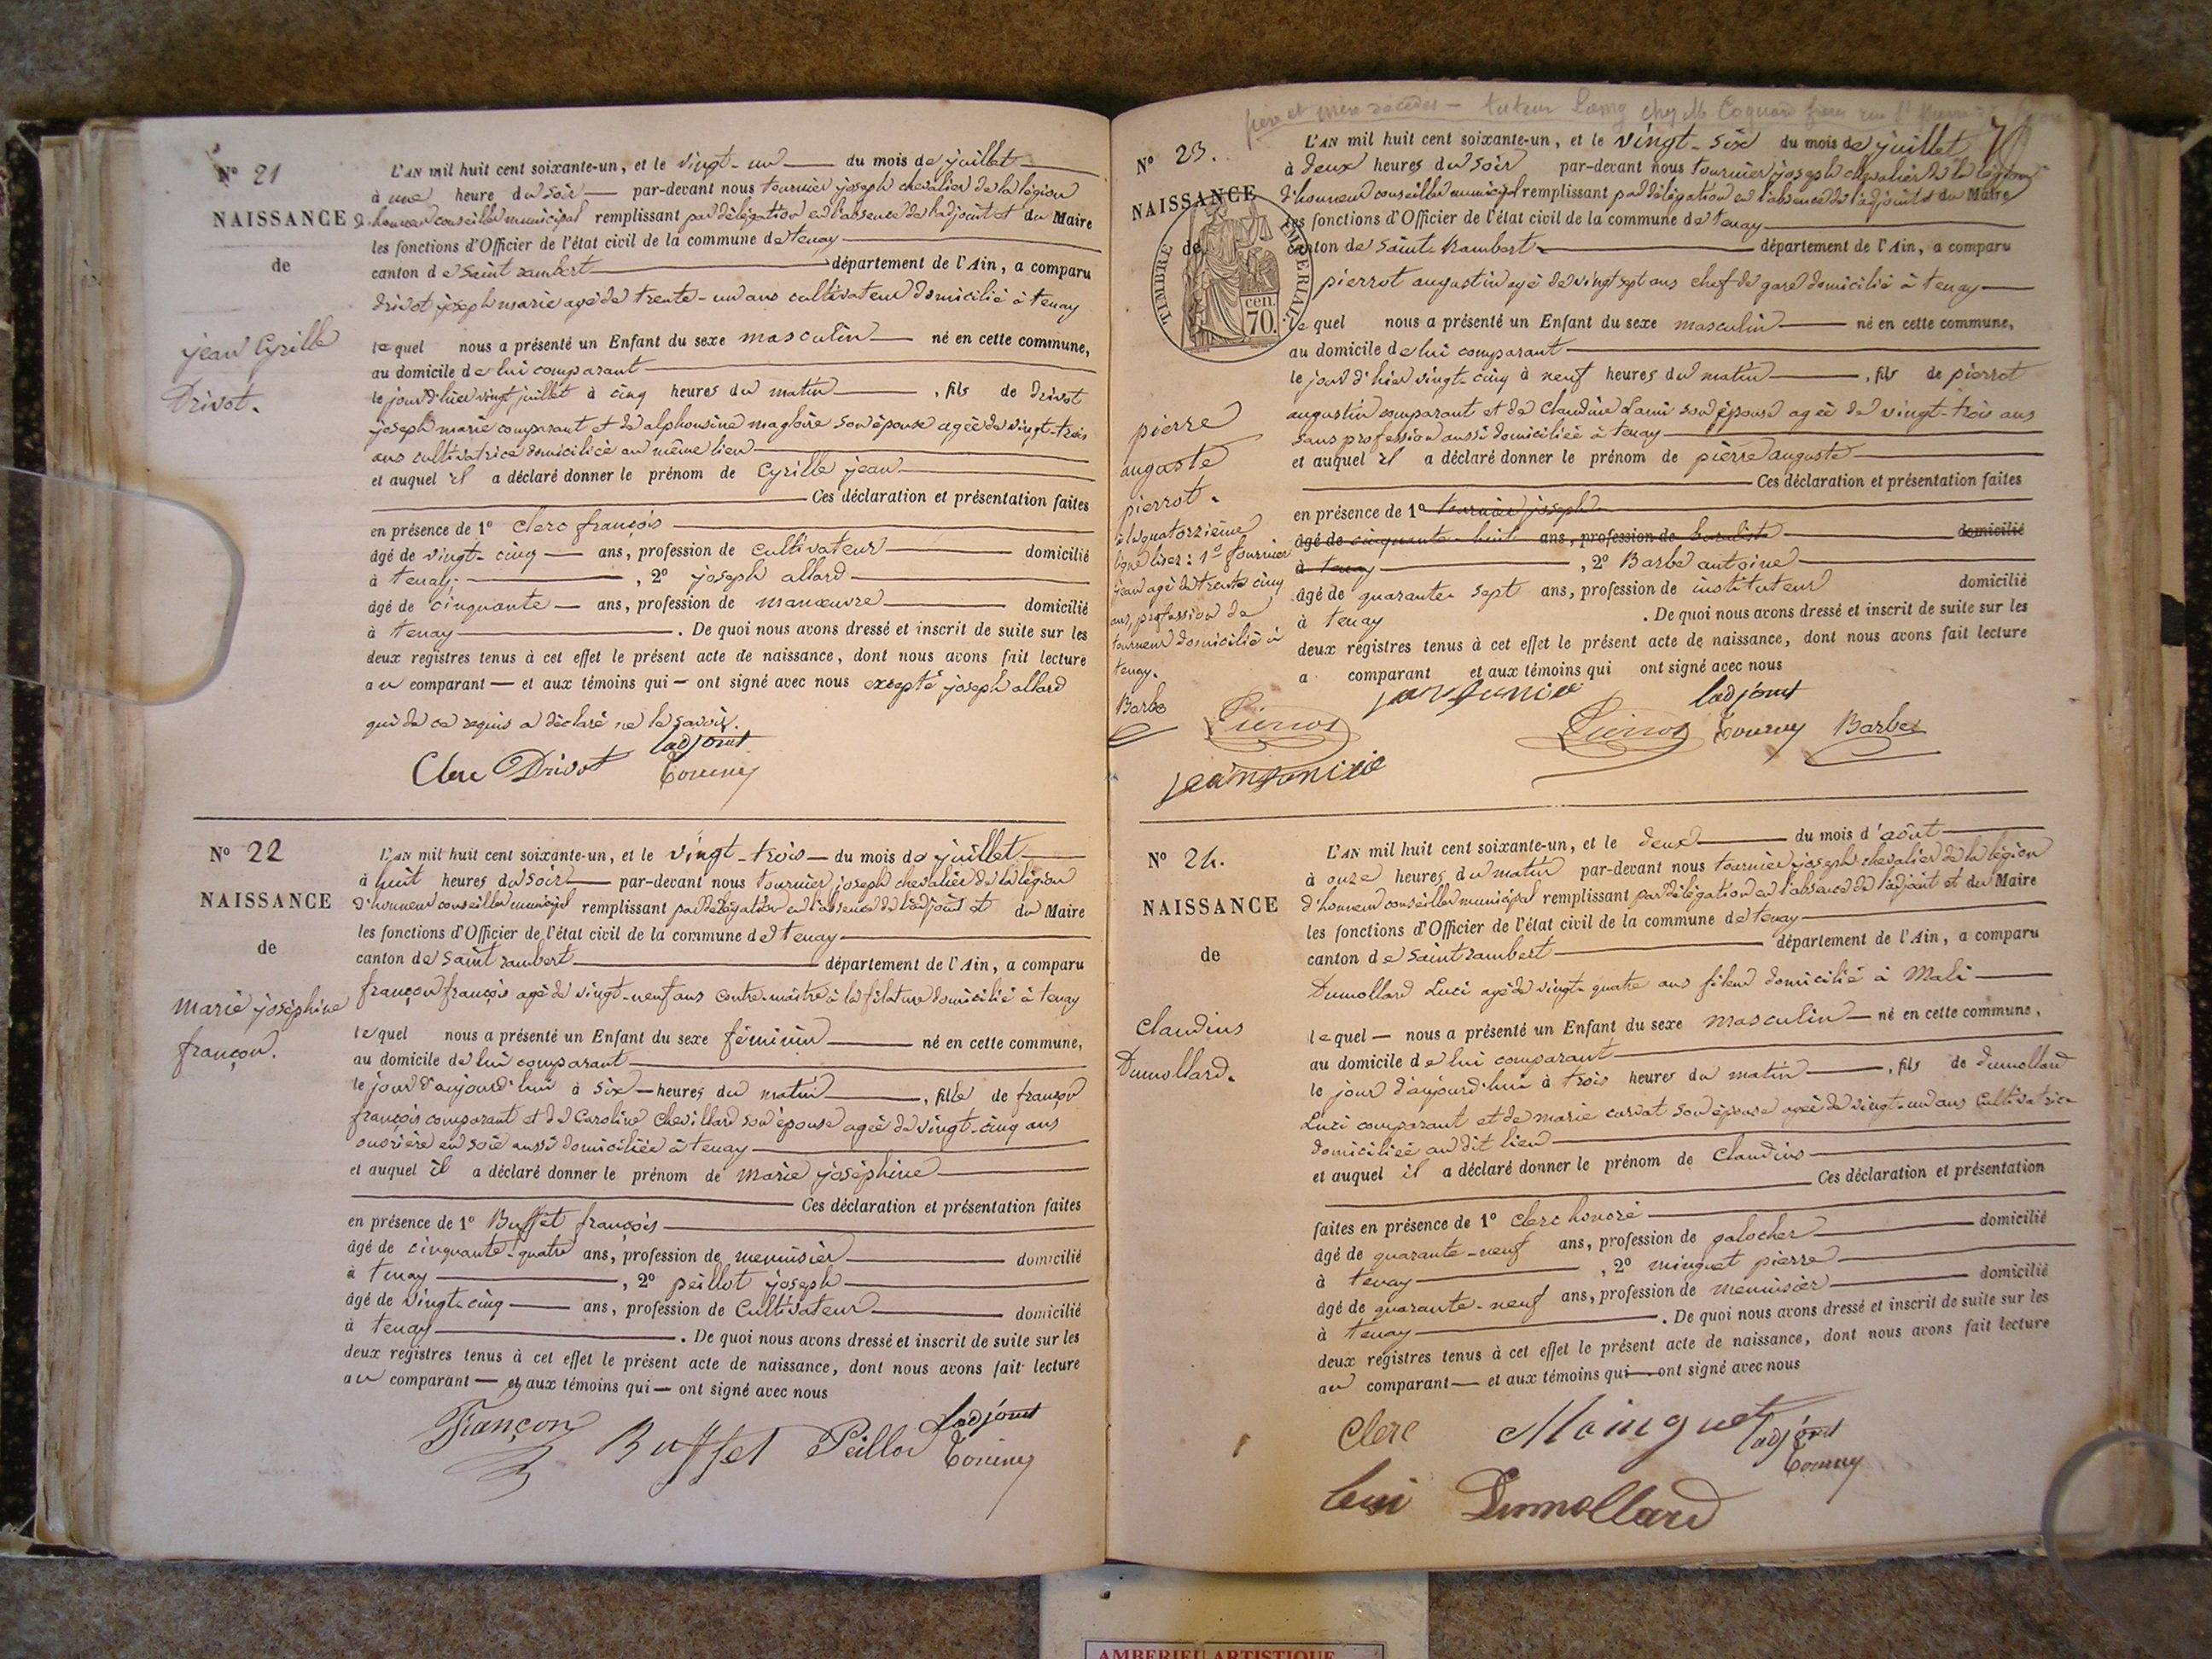 N° 21
NAISSANCE
de
jean Cyrille
Drivot.
L'AN mil huit cent soixante-un, et le vingt-un du mois de juillet
à une heure du soir par-devant nous tournier joseph chevalier de la légion
d'honneur conseiller municipal remplissant par délégation en l'absence de l'adjoint et du Maire
les fonctions d'Officier de l'état civil de la commune de tenay
canton de saint rambert département de l'Ain, a comparu
drivot joseph marie agé de trente-un ans cultivateur domicilié à tenay
lequel nous a présenté un Enfant du sexe masculin né en cette commune,
au domicile de lui comparant
le jour d'hier vingt juillet à cinq heures du matin, fils de drivot
joseph marie comparant et de alphonsine magloire son épouse agée de vingt-trois
ans cultivatrice domiciliée au même lieu
et auquel il a déclaré donner le prénom de Cyrille jean
Ces déclaration et présentation faites
en présence de 1° Clerc françois
âgé de vingt-cinq ans, profession de cultivateur domicilié
à tenay, 2° joseph allard
âgé de cinquante ans, profession de manœuvre domicilié
à tenay. De quoi nous avons dressé et inscrit de suite sur les
deux registres tenus à cet effet le présent acte de naissance, dont nous avons fait lecture
au comparant et aux témoins qui ont signé avec nous excepté joseph allard
qui de ce requis a déclaré ne le savoir.
ladjoint
Clerc Drivot
N° 22
NAISSANCE
de
marie joséphine
françon.
L'AN mil huit cent soixante-un, et le vingt-trois du mois de juillet
à huit heures du soir par-devant nous tournier joseph chevalier de la légion
d'honneur conseiller municipal remplissant par délégation en l'absence de l'adjoint et du Maire
les fonctions d'Officier de l'état civil de la commune de tenay
canton de saint rambert département de l'Ain, a comparu
françon françois agé de vingt-neuf ans contre-maître à la filature domicilié à tenay
lequel nous a présenté un Enfant du sexe féminin né en cette commune,
au domicile de lui comparant
le jour d'aujourd'hui à six heures du matin, fille de françon
françois comparant et de Caroline Chevillard son épouse agée de vingt-cinq ans
ouvrière en soie aussi domiciliée à tenay
et auquel il a déclaré donner le prénom de marie joséphine
Ces déclaration et présentation faites
en présence de 1° Buffet françois
âgé de cinquante-quatre ans, profession de menuisier domicilié
à tenay, 2° peillot joseph
âgé de vingt-cinq ans, profession de Cultivateur domicilié
à tenay. De quoi nous avons dressé et inscrit de suite sur les
deux registres tenus à cet effet le présent acte de naissance, dont nous avons fait lecture
au comparant et aux témoins qui ont signé avec nous
Françon Buffet Peillod Ladjoint
père et mère décédés - tuteur chez M Coquard frères rue St
70
N° 23.
NAISSANCE
de
TIMBRE IMPERIAL
cen.
70.
pierre
auguste
pierrot.
à la quatorzième
ligne lisez: 1° fournier
jean agé de trente cinq
ans, profession de
tourneur domicilié à
tenay.
Barbe
Pierrot
L'AN mil huit cent soixante-un, et le vingt-six du mois de juillet
à deux heures du soir par-devant nous tournier joseph chevalier de la légion
d'honneur conseiller municipal remplissant par délégation en l'absence de l'adjoint et du Maire
les fonctions d'Officier de l'état civil de la commune de tenay
canton de saint-Rambert département de l'Ain, a comparu
pierrot augustin agé de vingt sept ans chef de gare domicilié à tenay
lequel nous a présenté un Enfant du sexe masculin né en cette commune,
au domicile de lui comparant
le jour d'hier vingt-cinq à neuf heures du matin, fils de pierrot
augustin comparant et de Claudine Lami son épouse agée de vingt-trois ans
sans profession aussi domiciliée à tenay
et auquel il a déclaré donner le prénom de pierre auguste
Ces déclaration et présentation faites
en présence de 1° tournier joseph
âgé de cinquante-huit ans, profession de buraliste domicilié
à tenay, 2° Barbe antoine
âgé de quarante sept ans, profession de instituteur domicilié
à tenay. De quoi nous avons dressé et inscrit de suite sur les
deux registres tenus à cet effet le présent acte de naissance, dont nous avons fait lecture
a comparant et aux témoins qui ont signé avec nous
ladjoint
Pierrot Barbe
N° 24.
NAISSANCE
de
Claudius
Dumollard.
L'AN mil huit cent soixante-un, et le deux du mois d'août
à onze heures du matin par-devant nous tournier joseph chevalier de la légion
d'honneur conseiller municipal remplissant par délégation en l'absence de l'adjoint et du Maire
les fonctions d'Officier de l'état civil de la commune de tenay
canton de saint rambert département de l'Ain, a comparu
Dumollard Luci agé de vingt-quatre ans fileur domicilié à Mali
lequel nous a présenté un Enfant du sexe masculin né en cette commune,
au domicile de lui comparant
le jour d'aujourd'hui à trois heures du matin, fils de dumollard
Luci comparant et de marie son épouse agée de vingt-un ans Cultivatrice
domiciliée au dit lieu
et auquel il a déclaré donner le prénom de Claudius
Ces déclaration et présentation
faites en présence de 1° Clerc honoré
âgé de quarante-neuf ans, profession de galocher domicilié
à tenay, 2° minguet pierre
âgé de quarante-neuf ans, profession de menuisier domicilié
à tenay. De quoi nous avons dressé et inscrit de suite sur les
deux registres tenus à cet effet le présent acte de naissance, dont nous avons fait lecture
au comparant et aux témoins qui ont signé avec nous
Clerc Mainguet ladjoint
Luci Dumollard
AMBERIEU ARTISTIQUE